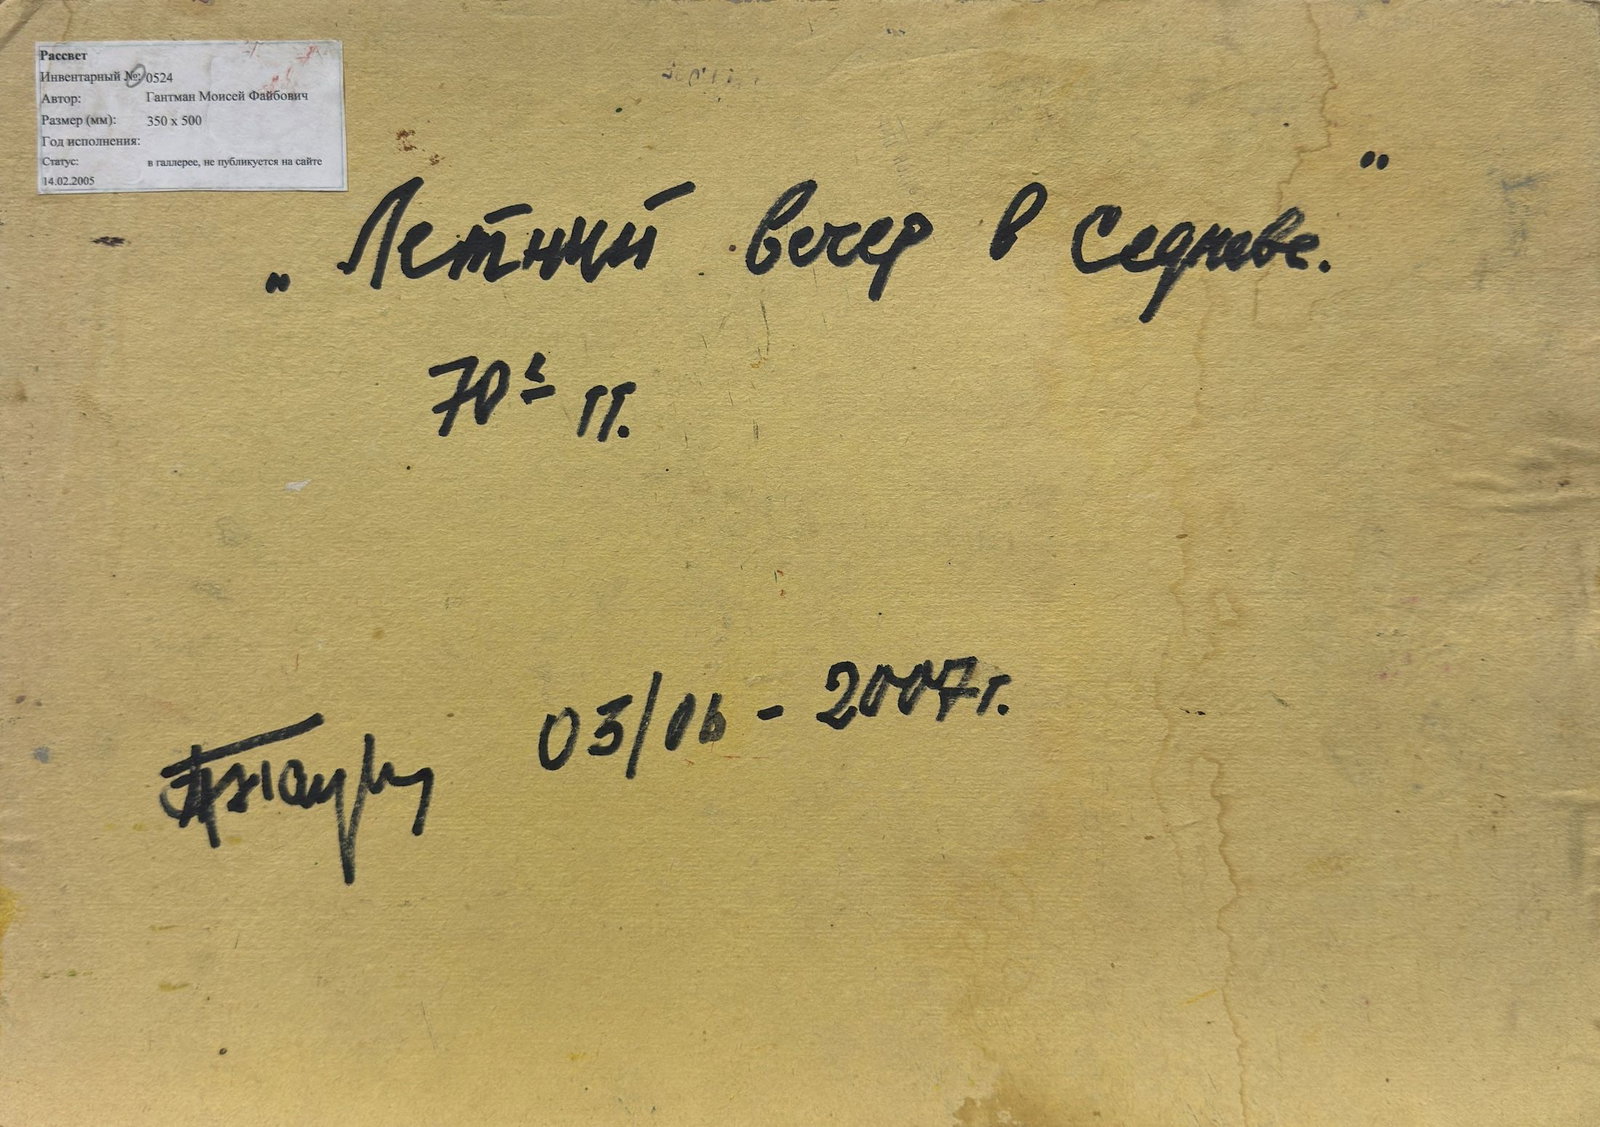 Рассвет
Инвентарный №: 0524
Автор: Гантман Моисей Файбович
Размер (мм): 350 х 500
Год исполнения:
Статус: в галлерее, не публикуется на сайте
14.02.2005
„Летний вечер в Седневе.“
70е гг.
03/06 - 2007г.